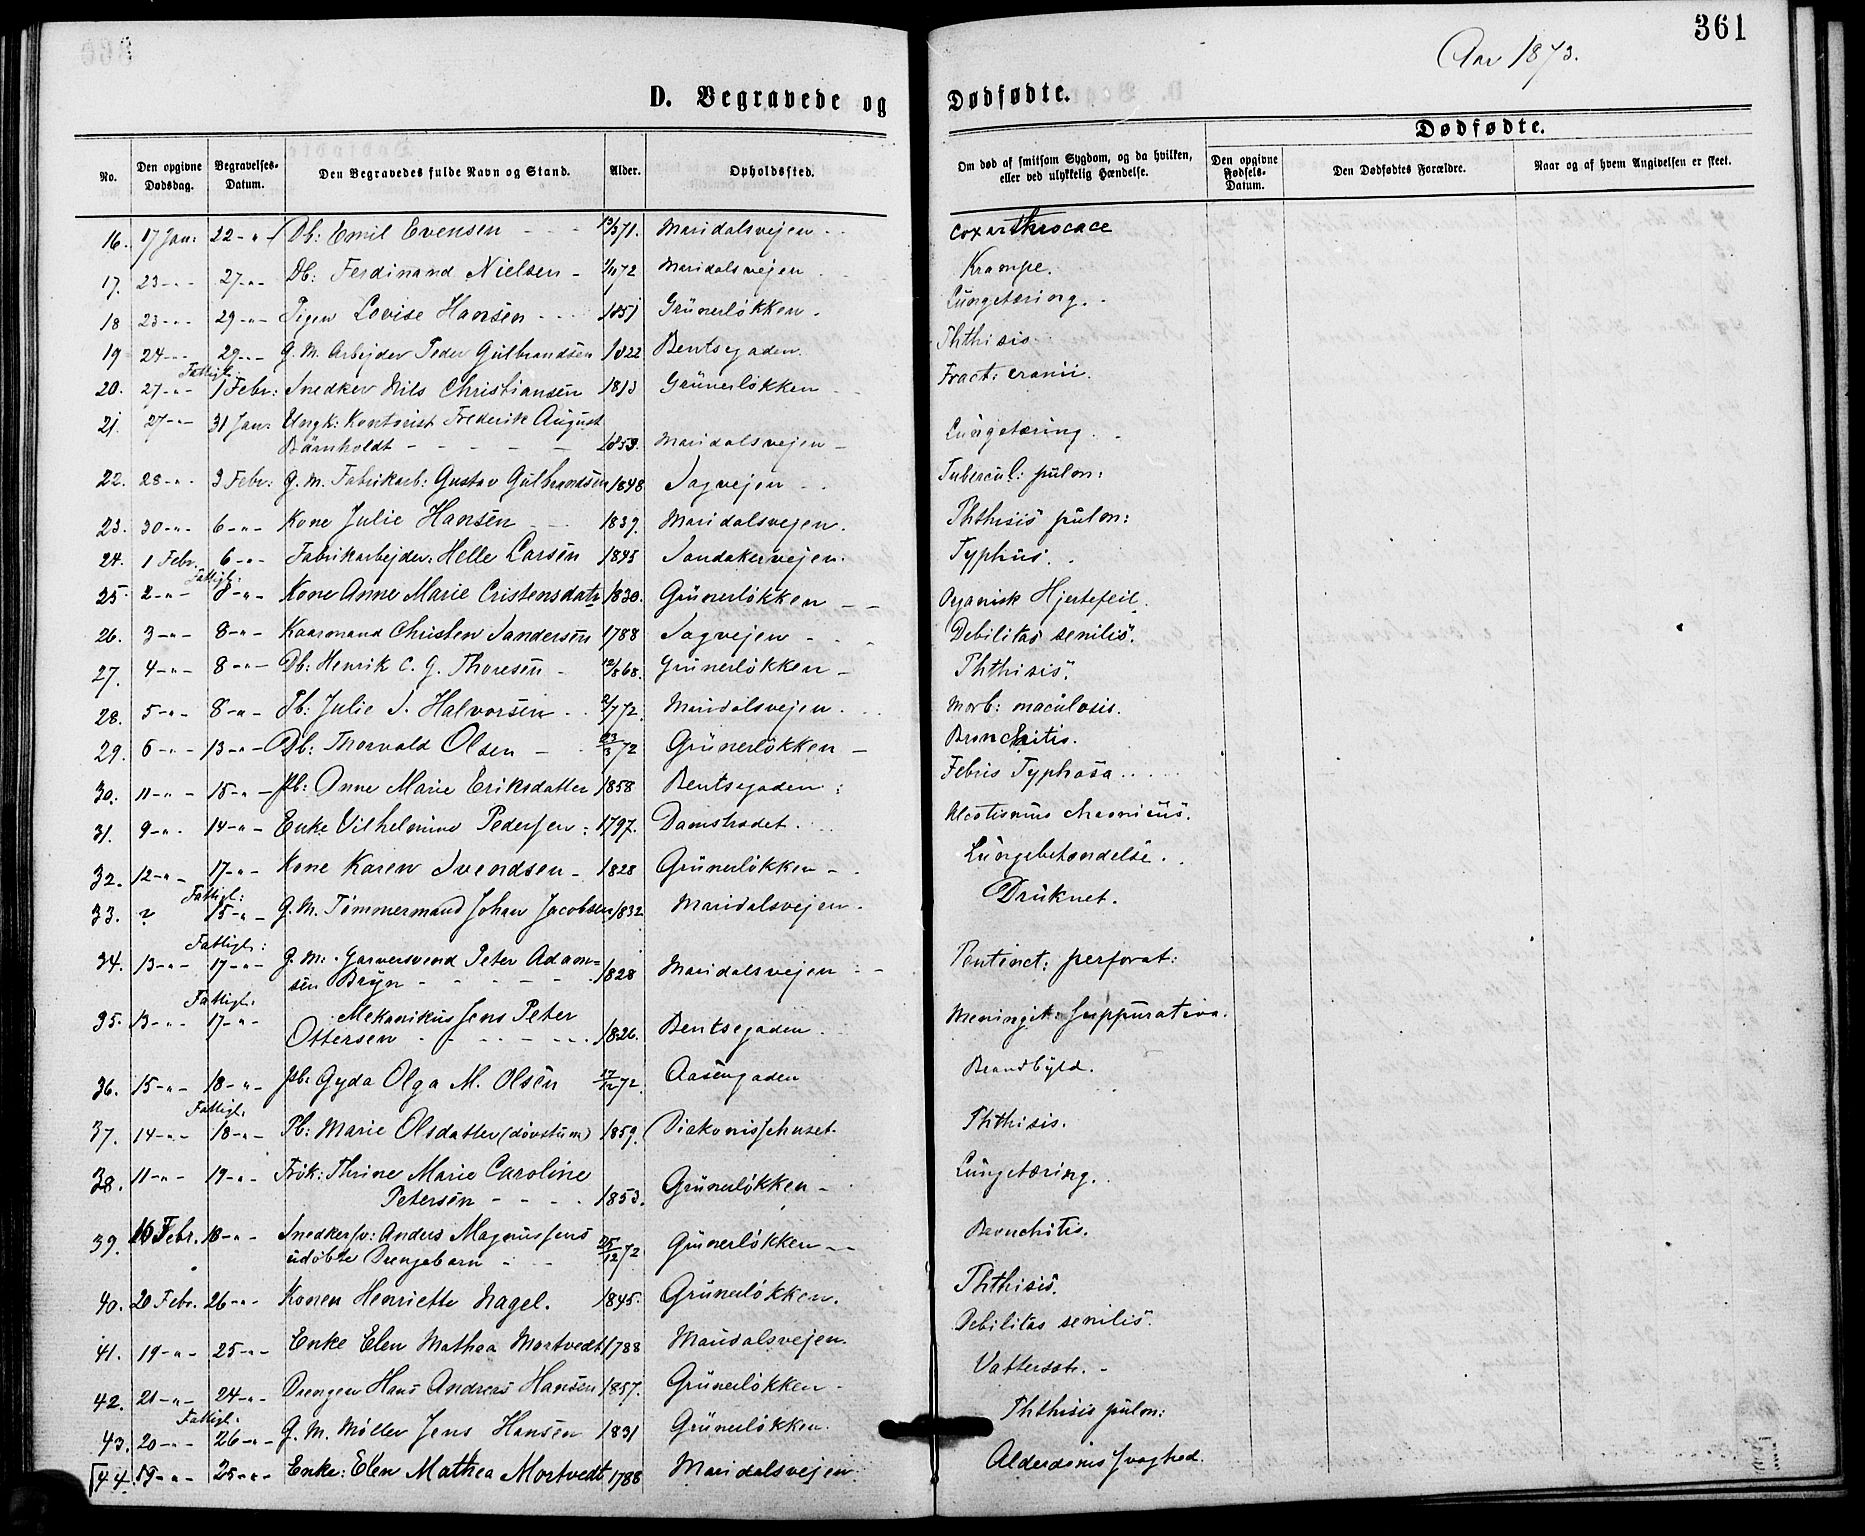 361
Aar 1873.
D. Begravede og Dødfødte.
Dødfødte.
No. Den opgivne Dødsdag. Begravelses-Datum. Den Begravedes fulde Navn og Stand. Alder. Opholdssted. Om død af smitsom Sygdom, og da hvilken, eller ved ulykkelig Hændelse. Den opgivne Fødsels-Datum. Den Dødfødtes Forældre. Naar og af hvem Angivelsen er skeet.
16. 17 Jan: 22-"- Db: Emil Evensen - - 13/371. Maridalsvejen - - Coxarthrocace
17. 23-"- 27-"- Db: Ferdinand Nielsen - 1/1072 Maridalsvejen. Krampe.
18 23-"- 29-"- Pigen Lovise Hansen - - 1851 Grünerløkken. Lungetæring.
19 24-"- 29-"- G. M. Arbejder Peder Gulbrandsen 1822 Bentsegaden. Phthisis
Fattigl:
20. 27-"- 1 Febr: Snedker Nils Christiansen 1813 Grünerløkken Fract: cranii.
21. 27-"- 31 Jan: Ungk: Kontorist Frederik August
Bärnholdt - - - - - 1853. Maridalsvejen - Lungetæring.
22. 28-"- 3 Febr: G. M. Fabrikarb: Gustav Gulbrandsen 1848 Sagvejen - - Tubercul: pulon:
23. 30-"- 6-"- Kone Julie Hansen - - 1839. Maridalsvejen. Phthisis pulon:
24. 1 Febr. 6-"- Fabrikarbejder: Helle Larsen 1845 Sandakervejen. Typhus.
Fattigl:
25. 2-"- 8-"- Kone Anne Marie Cristensdatr 1830. Grünerløkken - - Organisk Hjertefeil.
26. 3-"- 8-"- Kaarmand Christen Sandersen 1788 Sagvejen - - Debilitas senilis.
27. 4-"- 8-"- Db: Henrik C. G. Thoresen - 12/868. Grünerløkken - Phthisis.
28. 5-"- 8-"- Pb: Julie J. Halvorsen - - 2/772. Maridalsvejen. Morb: maculosis.
29. 6-"- 13-"- Db: Thorvald Olsen - 23/372 Grünerløkken - Bronchitis.
30. 11-"- 15-"- Pb: Anne Marie Eriksdatter 1858 Bentsegaden: Febris Typhosa
31. 9-"- 14-"- Enke Vilhelmine Pedersen: 1797. Damstrædet. Alcotismus Chronicus.
32. 12-"- 17-"- Kone Karen Svendsen - 1828 Grünerløkken - - Lungebetændelse.
Fattigl:
33. ? 15-"- G. M. Tømmermand Johan Jacobsen 1832 Maridalsvejen. Druknet.
Fattigl:
34. 13-"- 17-"- G. M: Garversvend Peter Adam=
sen Bryn - - - - - 1828 Maridalsvejen - - perforat:
Fattigl:
35. 13-"- 17-"- Mekanikus Jens Peter
Ottersen - - - - - 1826. Bentsegaden. Meningit: suppurativa.
36. 15-"- 18-"- Pb: Gyda Olga M. Olsen 17/1272. Aasengaden Brandbyld.
Fattigl:
37. 14-"- 18-"- Pb: Marie Olsdatter (døvstum) 1859. Diakonissehuset. Phthisis.
38. 11-"- 19-"- Frøk: Thrine Marie Caroline
Petersen - - - - 1853. Grünerløkken - Lungetæring.
39. 16 Febr. 18-"- Snedkersv: Anders Magnussens
udøbte Drengebarn - - 25/1272. Grünerløkken - - Bronchitis.
40. 20 Febr. 26-"- Konen Henriette Nagel. 1845. Grünerløkken. Phthisis.
41. 19-"- 25-"- Enke Elen Mathea Mortvedt 1788 Maridalsvejen. Debilitas senilis.
42. 21-"- 24-"- Drengen Hans Andreas Hansen 1857. Grünerløkken - Vattersot. -
Fattigl:
43. 20-"- 26-"- G. M. Møller Jens Hansen 1831 Grünerløkken. Phthisis pulon:
44. 19-"- 25-"- Enke: Elen Mathea Mortvedt 1788 Maridalsvejen. Alderdomssvaghed.